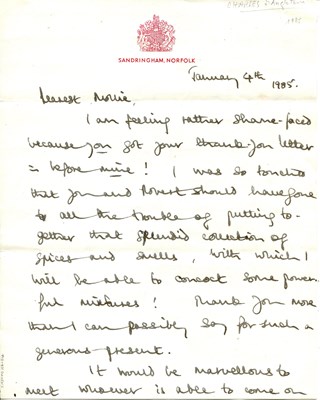 SANDRINGHAM, NORFOLK
January 4th
1985.
Dearest Mollie,
I am feeling rather shame-faced
because you got your thank-you letter
in before mine! I was so touched
that you and Robert should have gone
to all the trouble of putting to-
gether that splendid collection of
spices and smells, with which I
will be able to concoct some power-
ful mixtures! Thank you more
than I can possibly say for such a
generous present.
It would be marvellous to
meet whoever is able to come on